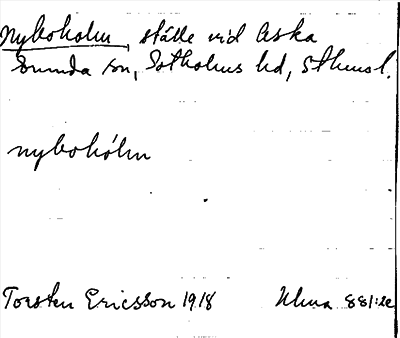 Nyboholm, ställe vid Aska
Sorunda sn, Sotholms hd, Sthmsl.
nyboho´lm
Torsten Ericsson 1918 Ulma 881:2c